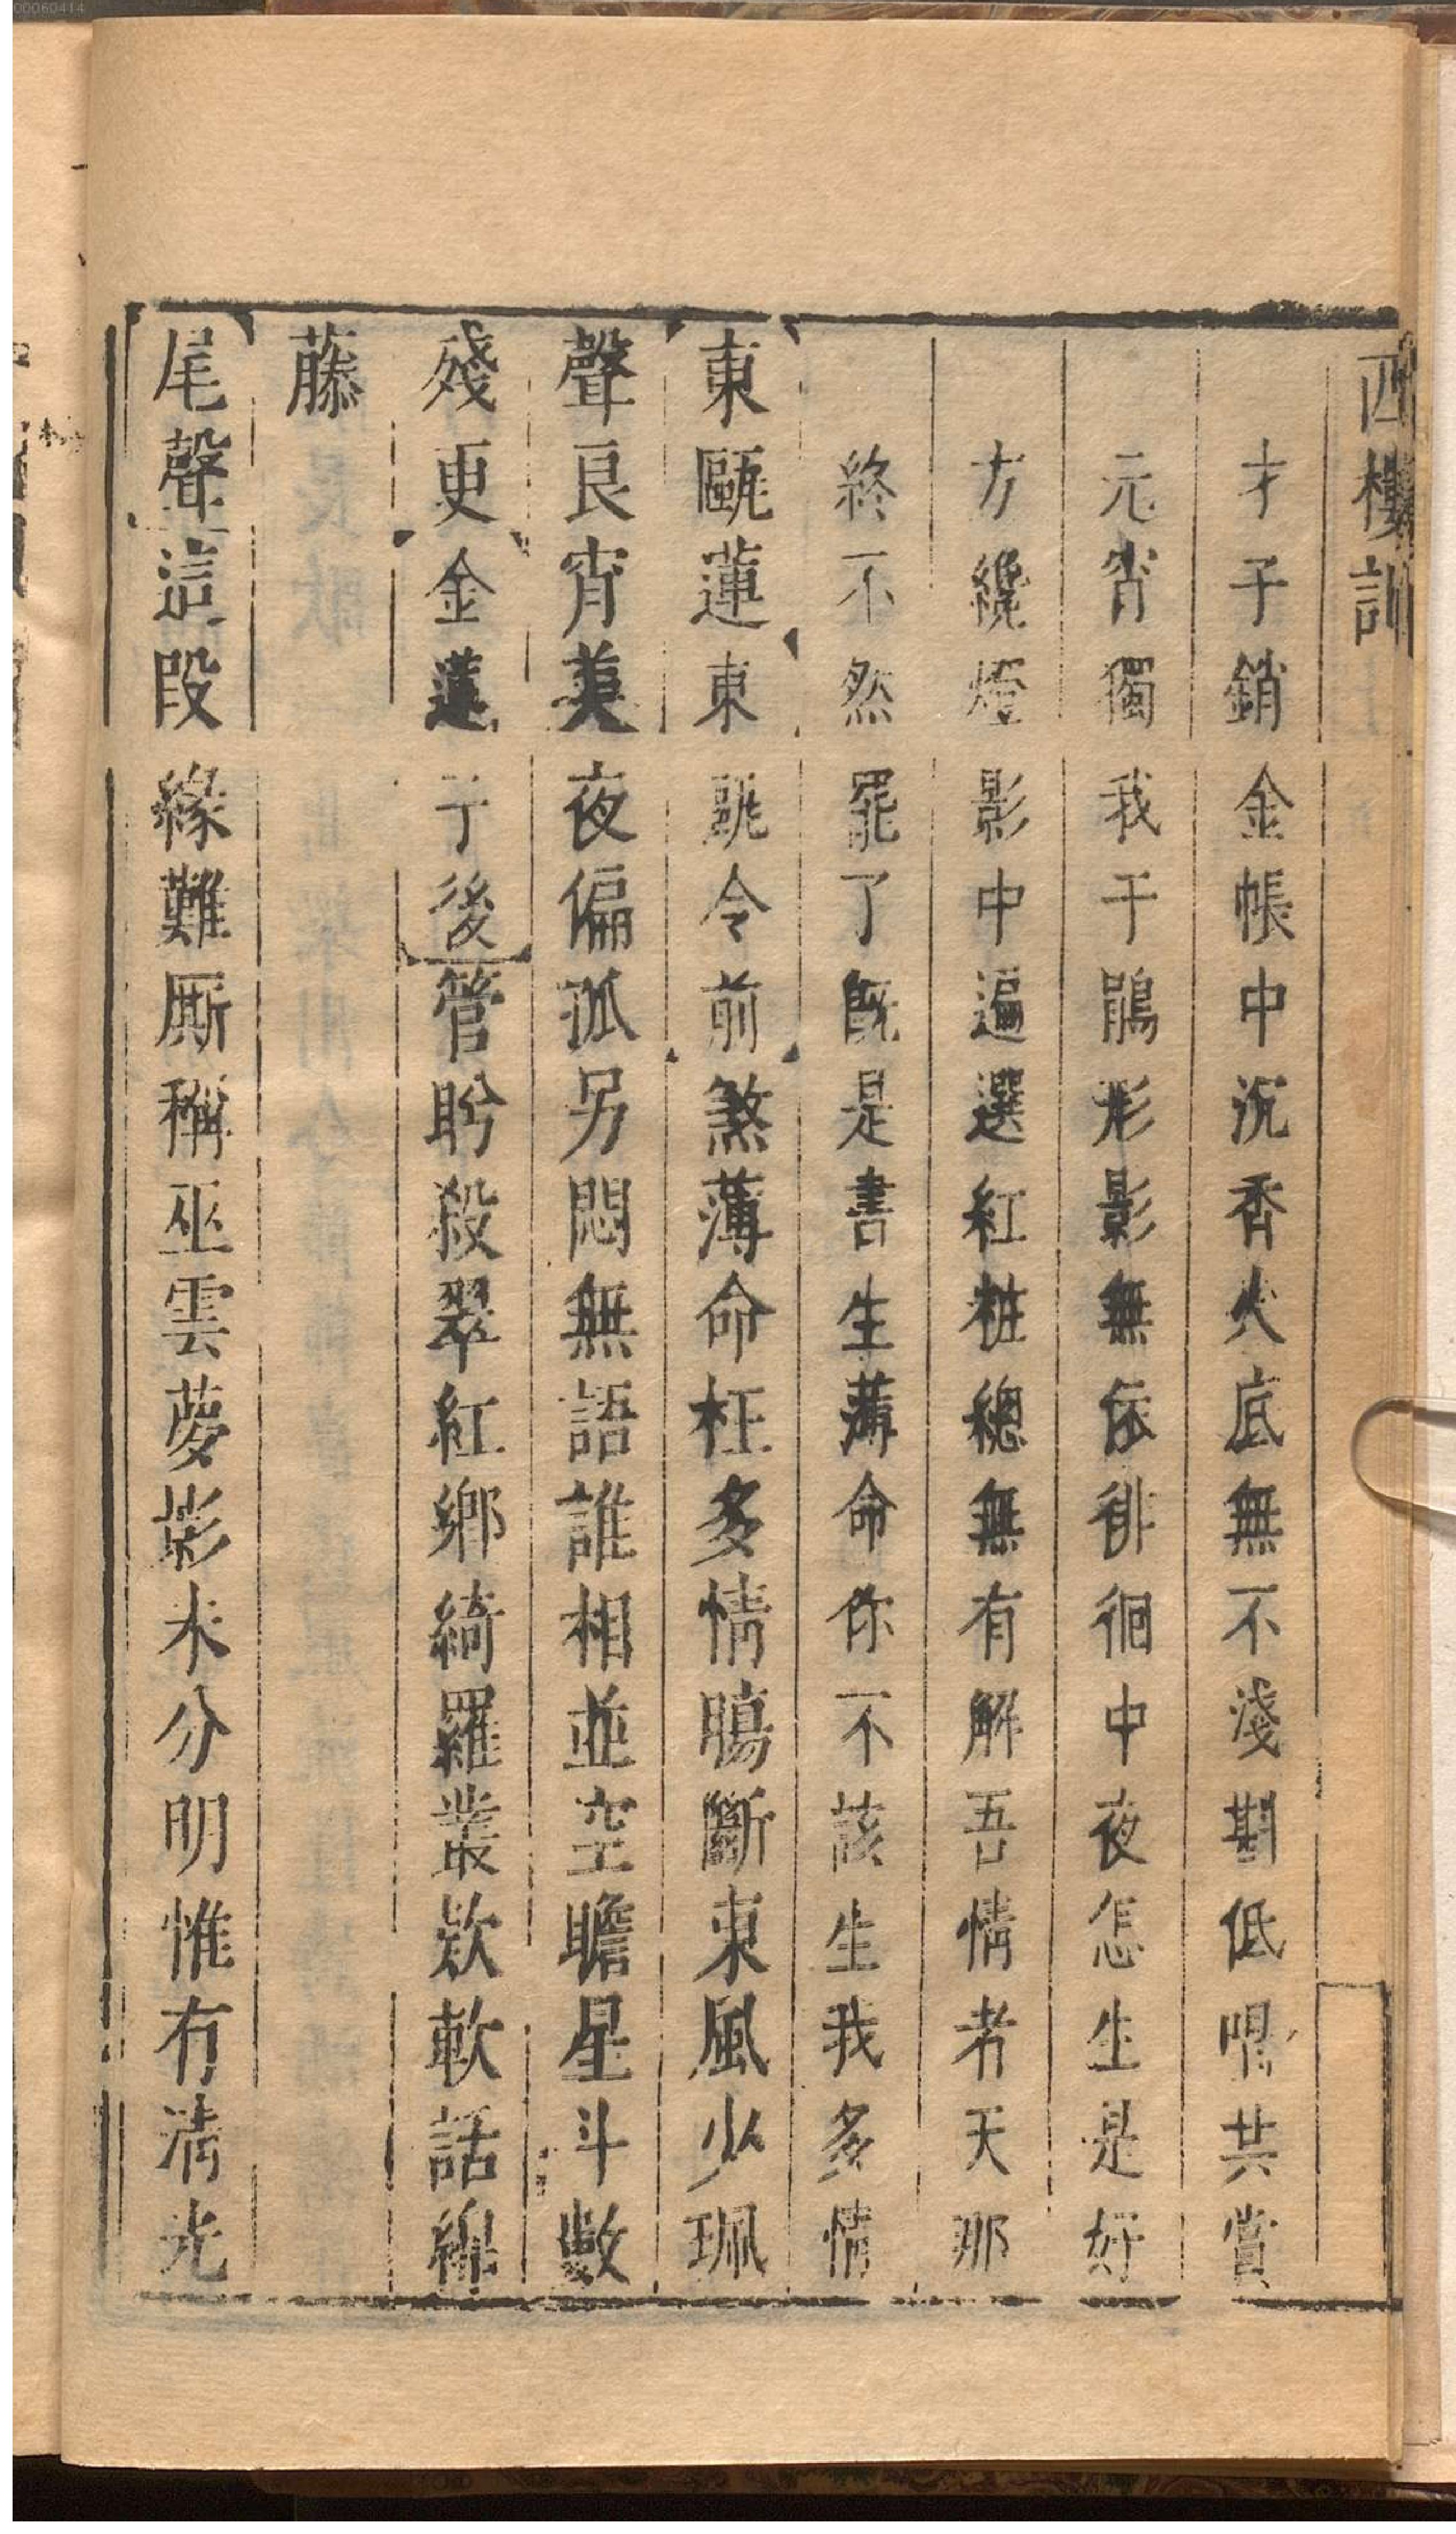 西樓記
才子銷金帳中沉香火底無不淺斟低唱共賞
元宵獨我于鵑形影無依徘徊中夜怎生是好
方纔燈影中遍選紅粧總無有解吾情者天那
終不然罷了既是書生薄命你不該生我多情
東甌蓮東甌令前煞薄命枉多情腸斷東風少珮
聲良宵美夜偏孤另悶無語誰相並空瞻星斗數
殘更金蓮子後管盻殺翠紅鄉綺羅叢欵軟話綿
藤
尾聲這段緣難厮稱巫雲夢影未分明惟有淸光
00060414